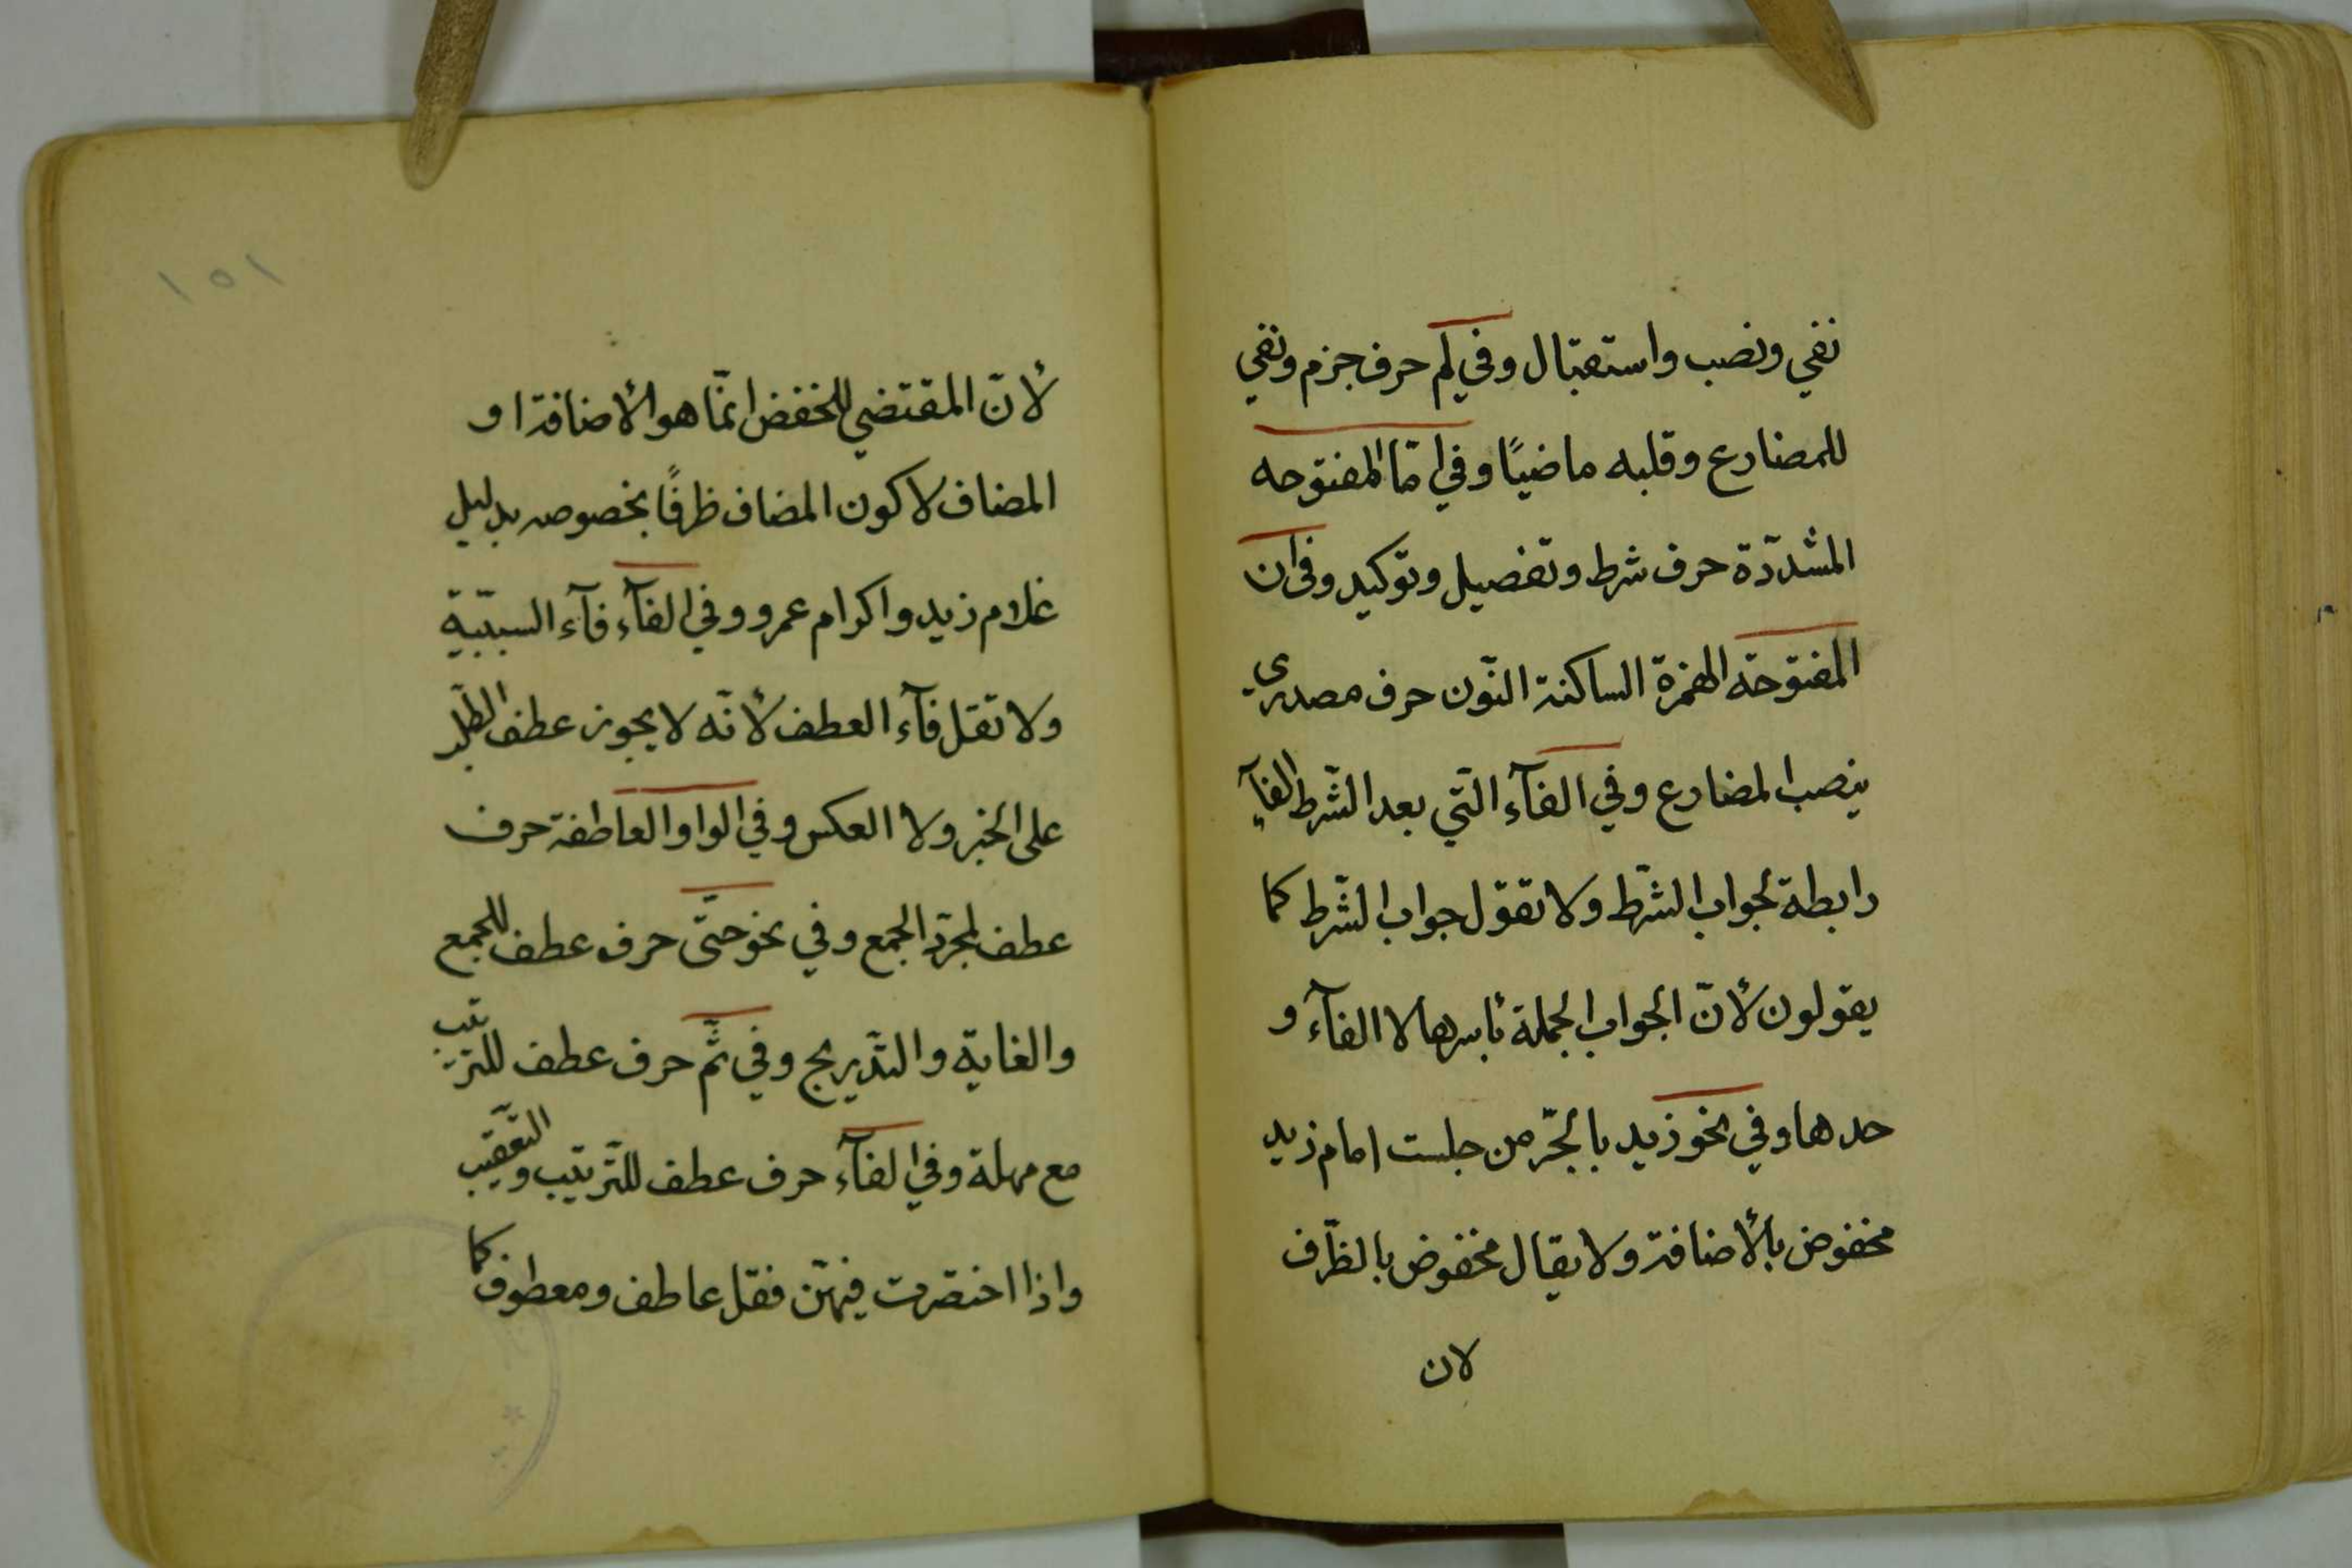 نفي ونصب واستقبال وفي لم حرف جزم ونفي
للمضارع وقلبه ماضيًا وفي امّا المفتوحه
المشدّدة حرف شرط وتفصيل وتوكيد وفى ان
المفتوحة الهمزة الساكنة النّون حرف مصدري
ينصب المضارع وفي الفآء الّتي بعد الشّرط الفآء
رابطة لجواب الشّرط ولا تقول جواب الشّرط كما
يقولون لأنّ الجواب الجملة بأسرها لا الفآء و
حدها وفي نحو زيد بالجّر من جلست امام زيد
مخفوض بالأضافة ولا يقال مخفوض بالظّرف
لان
١٥١
لأنّ المقتضي للخفض انمّا هو الأضافة او
المضاف لا كون المضاف ظرفًا بخصوصه بدليل
غلام زيد واكرام عمرو وفي الفآء فآء السببّيّة
ولا تقل فآء العطف لأنّه لا يجوز عطف الطّلب
على الخبر ولا العكس وفي الواو العاطفة حرف
عطف لمجرّد الجمع وفي نحو حتّى حرف عطف للجمع
والغاية والتّدريج وفي ثمّ حرف عطف للترتيب
مع مهلة وفي الفآء حرف عطف للتّرتيب والتّعقيب
واذا اختصرت فيهنّ فقل عاطف ومعطوف كما